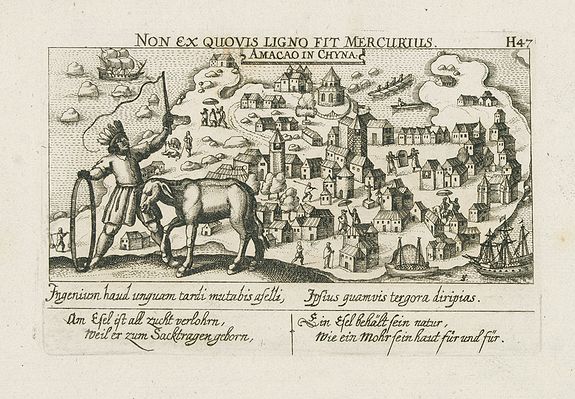 NON EX QUOVIS LIGNO FIT MERCURIUS.
H47
AMACAO IN CHYNA.
Ingenium haud unquam tardi mutabis aselli,
Ipsius quamvis tergora diripias.
Am Esel ist all zucht verlohrn,
Weil er zum Sacktragen geborn,
Ein Esel behält sein natur,
Wie ein Mohr sein haut für und für.